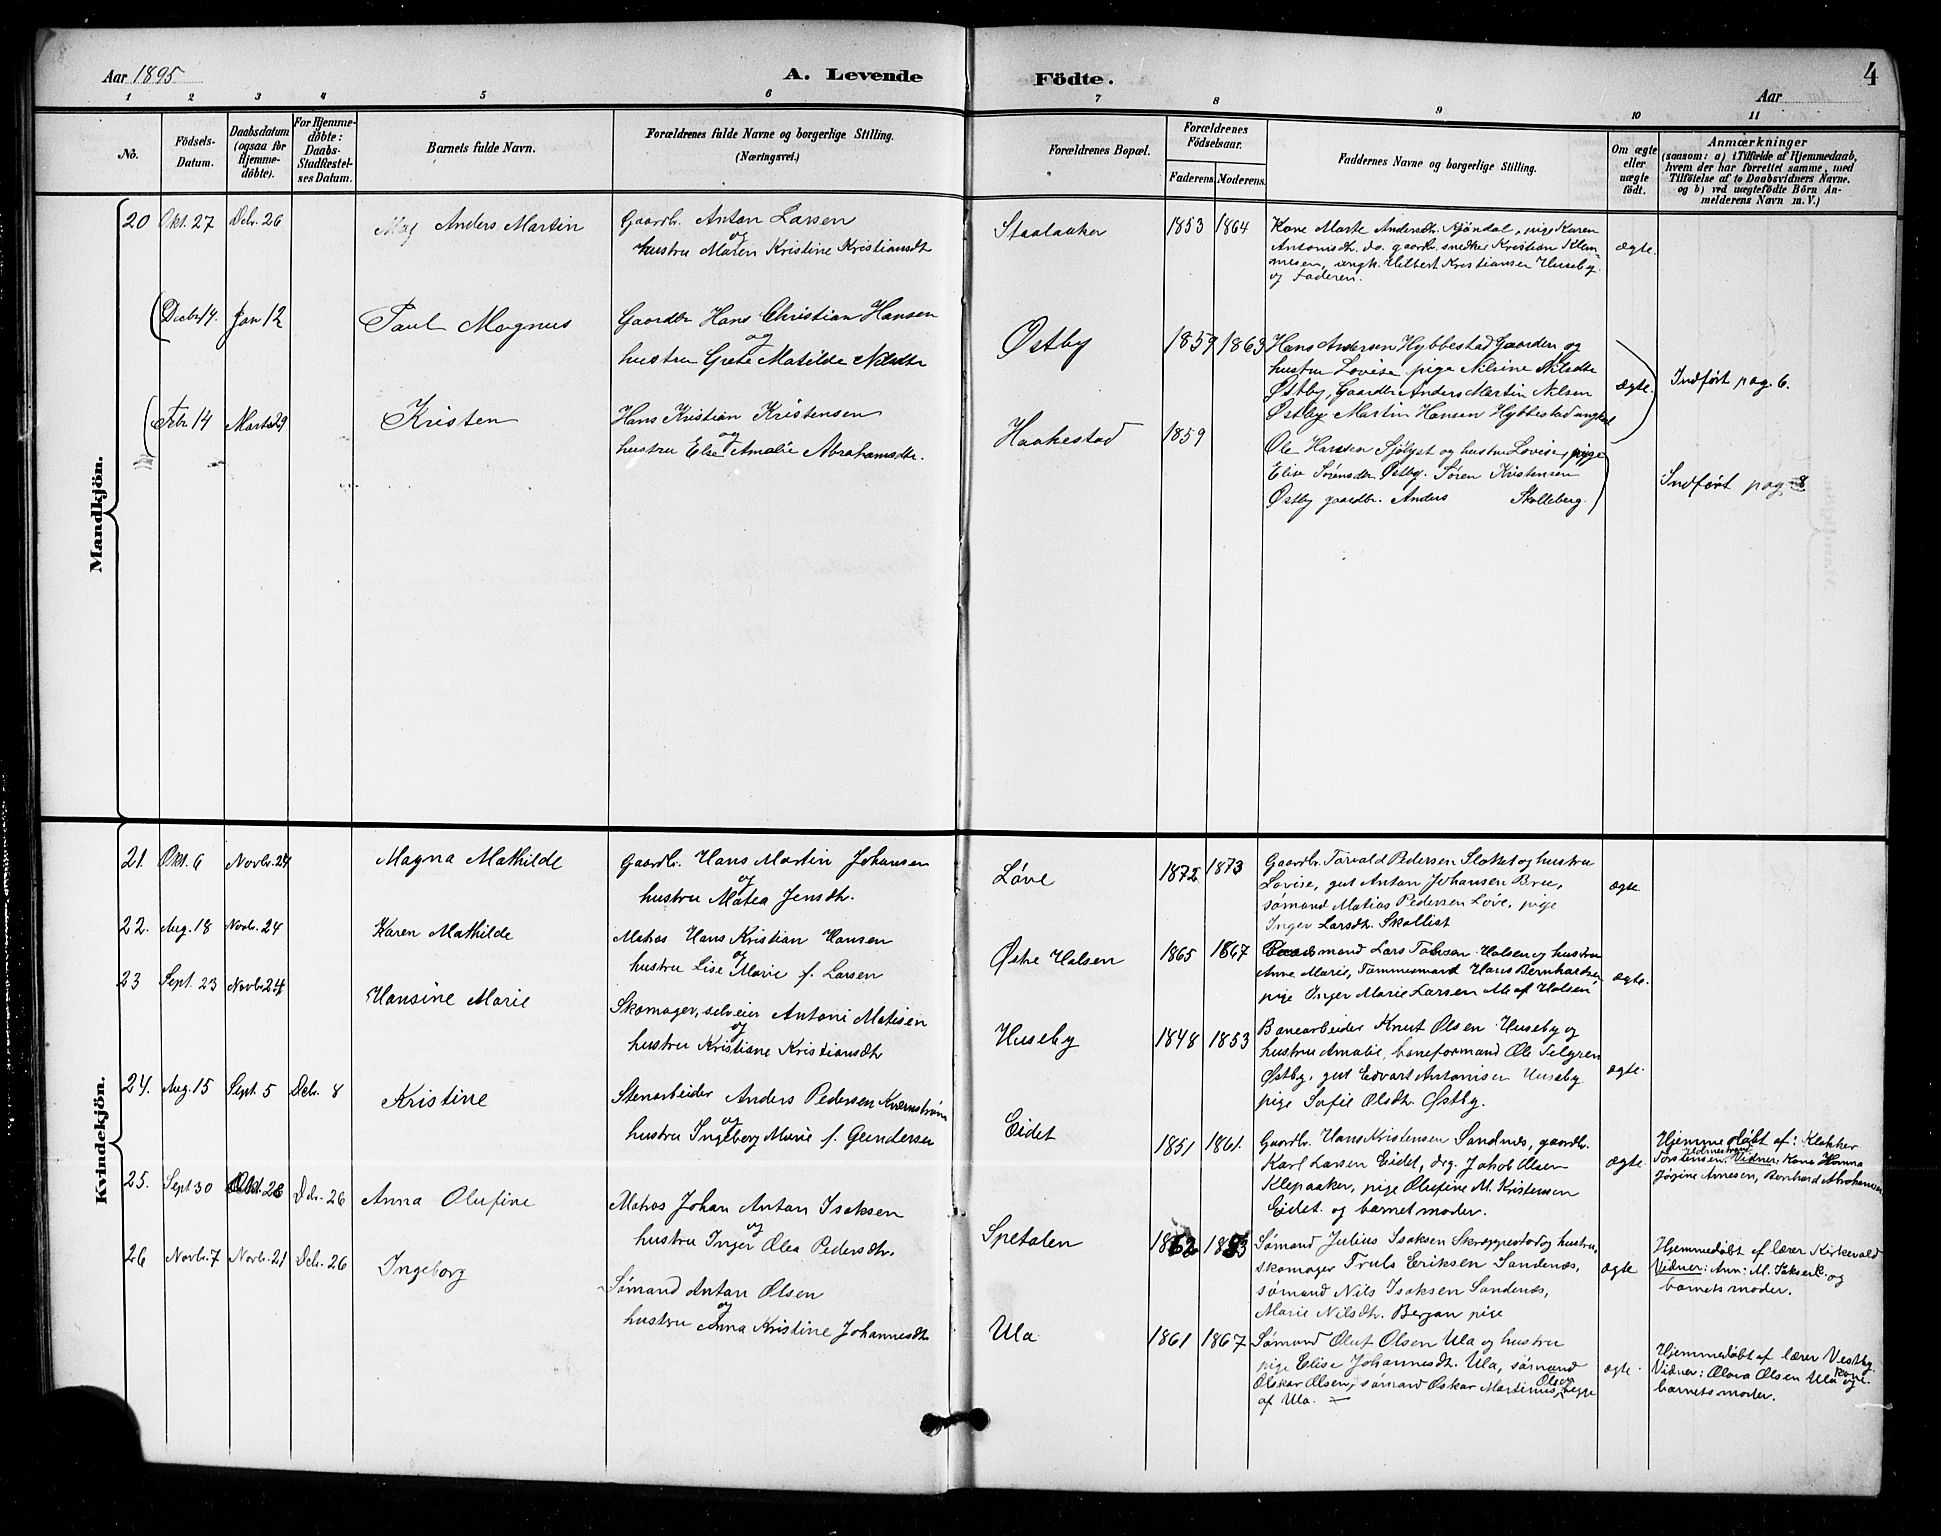 Aar 1895
A. Levende
Födte.
Aar
4
1 2 3 4 5 6 7 8 9 10 11
No.
Födsels-
Datum.
Daabsdatum
(ogsaa for
Hjemme-
döbte).
For Hjemme-
döbte:
Daabs-
Stadfæstel-
ses Datum.
Barnets fulde Navn.
Forældrenes fulde Navne og borgerlige Stilling.
(Næringsvei.)
Forældrenes Bopæl.
Forældrenes
Födselsaar.
Faderens. Moderens.
Faddernes Navne og borgerlige Stilling.
Om ægte
eller
uægte
födt.
Anmærkninger
(saasom: a) i Tilfælde af Hjemmedaab,
hvem der har forrettet samme, med
Tilföielse af to Daabsvidners Navne.
og b) ved uægtefödte Börn An-
melderens Navn m. V.)
Mandkjön.
20 Okt. 27 Decbr. 26 Anders Martin
Gaardbr. Anton Larsen
og
hustru Maren Kristine Kristiansdt
Staalaaker 1853 1864
Kone Marte Andersdtr. pige Karen
Antonisdt. do. gaardbr. snedker Kristian Klem-
mesen, ungk. Hilbert Kristiansen Huseby
og Faderen.
ægte.
Decbr 14. Jan 12 Paul Magnus
Gaardbr Hans Christian Hansen
og
hustru Grete Matilde Nilsdtr
Østby 1859 1863
Hans Andersen Hybbestad Gaarden og
hustru Lovise, pige Nilsine Nilsdtr
Østby, Gaardbr Anders Martin Nilsen
Østby Martin Hansen Hybbestad ungkel
ægte.
Indført pag. 6.
Febr 14 Marts 29 Kristen
Hans Kristian Kristensen
og
hustru Elise Amalie Abrahamsdtr.
Haakestad 1859
Ole Hansen Sjölyst og hustru Lovise, pige
Elise Sørensdtr Østby. Søren Kristensen
Østby gaardbr. Anders Skolleberg.
Indført pag 8
Kvindekjön.
21. Okt. 6 Novbr. 24 Magna Mathilde
Gaardbr. Hans Martin Johansen
og
hustru Matea Jensdtr.
Løve 1872 1873
Gaardbr. Torvald Pedersen og hustru
Lovise, gut Anton Johansen Bree,
sømand Matias Pedersen Løve, pige
Inger Larsdtr. Skallist
ægte
22. Aug. 18 Novbr. 24 Karen Mathilde
Matros Hans Kristian Hansen
og
hustru Lise Marie f. Larsen
Østre Halsen 1865 1867
mand Lars Halsen og hustru
Anne Marie, Tømmermand Hans Bernhardsen
pige Inger Marie Larsen Alle af Halsen
ægte.
23 Sept. 23 Novbr. 24 Hansine Marie
Skomager, selveier Antoni Matisen
og
hustru Kristiane Kristiansdtr
Huseby 1848 1853
Banearbeider Knut Olsen Huseby og
hustru Amalie, baneformand Ole Telgren
Østby, gut Edvart Antonisen Huseby
pige Sofie Olsdtr. Østby.
ægte.
24. Aug. 15 Sept. 5 Dcbr. 8 Kristine
Stenarbeider Anders Pedersen Kvernstrøm
og
hustru Ingeborg Marie f. Gundersen
Eidet 1851 1861.
Gaardbr. Hans Kristensen Sandnæs, gaardbr.
Karl Larsen Eidet, drg. Jakob Olsen
Klepaaker, pige Olufine M. Kristensen
Eidet og barnet moder.
ægte
Hjemmedøbt af: Klokker
Torstensen. Vidner: Kone Hanna
Jørgine Arnesen, Bernhard Abrahamsen
25. Sept 30 Okt. 28 Dcbr. 26 Anna Olufine
Matros Johan Anton Isaksen
og
hustru Inger Olea Pedersdtr.
Spetalen 1862 1853
Sømand Julius Isaksen Skreppestad og hustru,
skomager Truls Eriksen Sandenæs,
sømand Nils Isaksen Sandenæs,
Marie Nilsdtr. Bergan pige
ægte
Hjemmedøbt af lærer Kirkevold
Vidner: Ann: M. Isaksen K. og
barnets moder.
26 Novbr. 7 Novbr. 21 Dcbr. 26 Ingeborg
Sømand Anton Olsen
og
hustru Anna Kristine Johannesdtr
Ula 1861 1867
Sømand Oluf Olsen Ula og hustru
pige Elise Johannesdtr. Ula, sømand
Oskar Olsen, sømand Oskar Martinius Olsen begge
af Ula.
ægte
Hjemmedøbt af lærer Vestby.
Vidner: Olava Olsen Ula kone og
barnets moder.